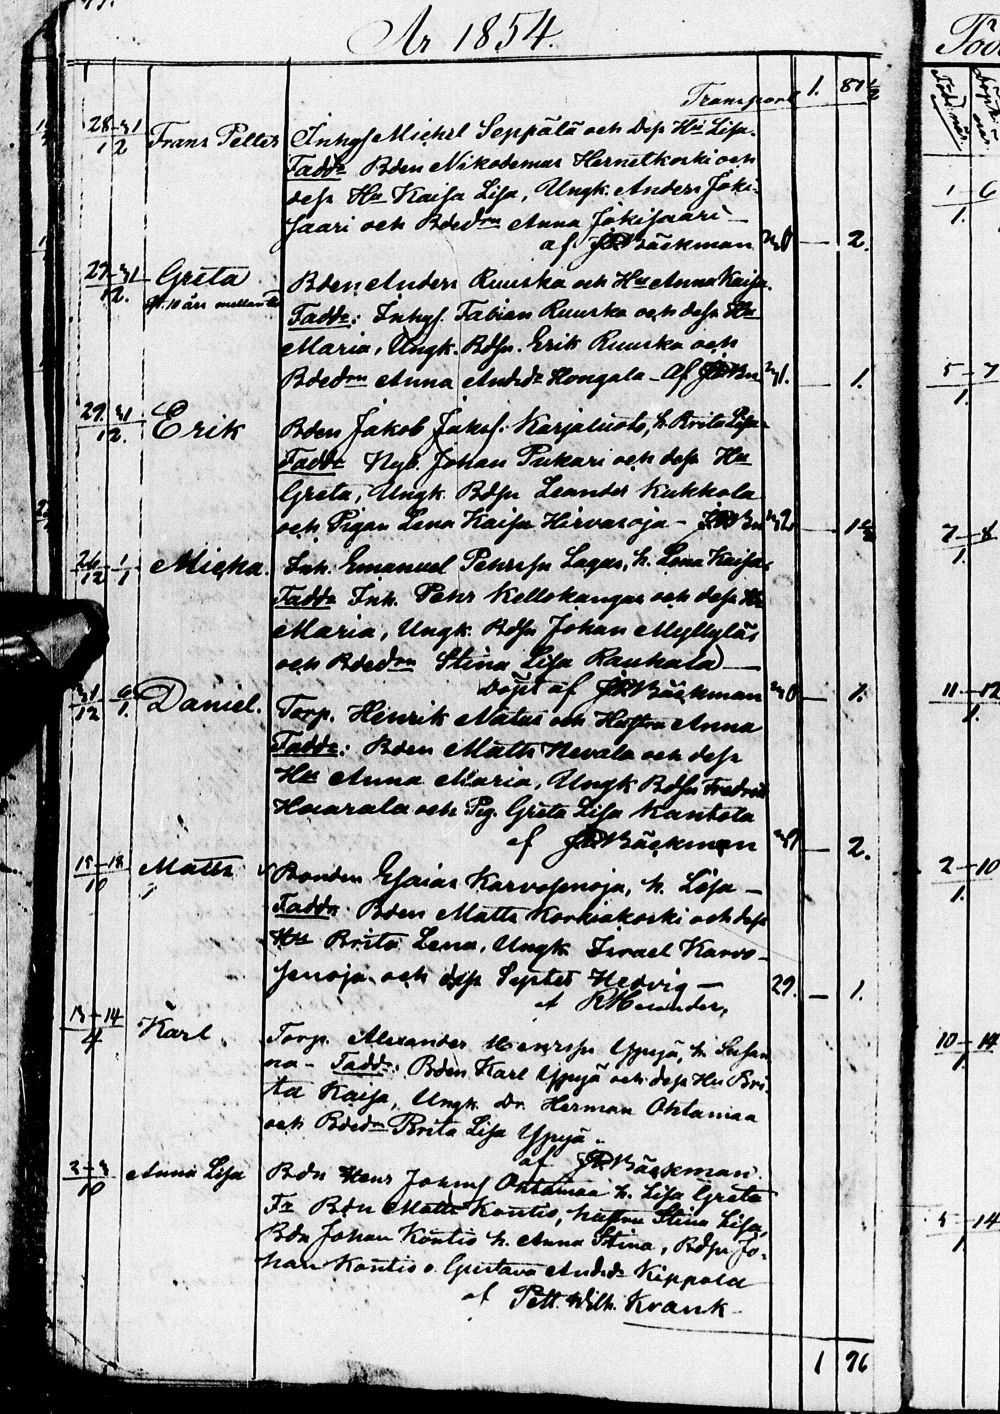 År 1854.
Transport 1. 81 1/2
28 31/12 Frans Petter Inhys Michel Seppälä och dess Hu Lisa.
Fadd: Bden Nikodemus Hernetkoski och
dess Hu Kaisa Lisa, Ungk. Anders Joki-
saari och Bdedrn Anna Jokisaari
af Bäckman — 2.
29 31/12. Greta Bden Anders Ruuska och Hu Anna Kaisa.
10 års mellan
Fadd: Inhys. Fabian Ruuska och dess Hu
Maria, Ungk. Bdsn. Erik Ruuska och
Bdedrn Anna Andrsdr Hongala — af 31. — 1.
29 31/12. Erik Bden Jakob Jaksn. Karjaluoto, h. Brita Lisa
Fadd Nyb. Johan Pukari och dess Hu
Greta, Ungk. Bdsn Leander Kukkola
och Pigan Lena Kaisa Hirvasoja — 32
26/12 1/1 Micka. Inh. Emanuel Petersn Lagus, h. Lena Kaisa
Fadd Inh. Petr Kellokangas och dess Hu
Maria, Ungk. Bdsn Johan Myllyläs
och Bdedrn Stina Lisa Rauhala —
Döpt af Bäckman — 1.
31/12 6/1. Daniel. Torp. Henrik Matus och Hustru Anna
Fadd: Bden Matts Nevala och dess
Hu Anna Maria, Ungk Bdsn Fredrik
Haarala och Pig. Greta Lisa Kantola
af Bäckman — 2.
15–18/10 Matts Bonden Esaias Karvosenoja, h. Lisa —
Fadd: Bden Matts Korkiakoski och dess
Hu Brita Lena, Ungk Israel Karvo-
senoja och dess Syster Hedvig — 29. — 1.
af
13–14/4 Karl Torp. Alexander Henrssn Yppyä, h Susan
na — Fadd: Bden Karl Yppyä och dess Hu Bri-
ta Kaisa, Ungk. Dr. Herman Ohtamaa
och Bdedrn Brita Lisa Yppyä.
af Bäckman.
2–3/10 Anna Lisa Bdn Hans Johnsn Ohtamaa h. Lisa Greta
Fr Bdn Matts Kontio, hustru Stina Lisa,
Bdn Johan Kontio h. Anna Stina, Bdsn Jo-
han Kontio o. Gustava Andrsdr Kippola
af Pett. Wilh. Krank —
1 96